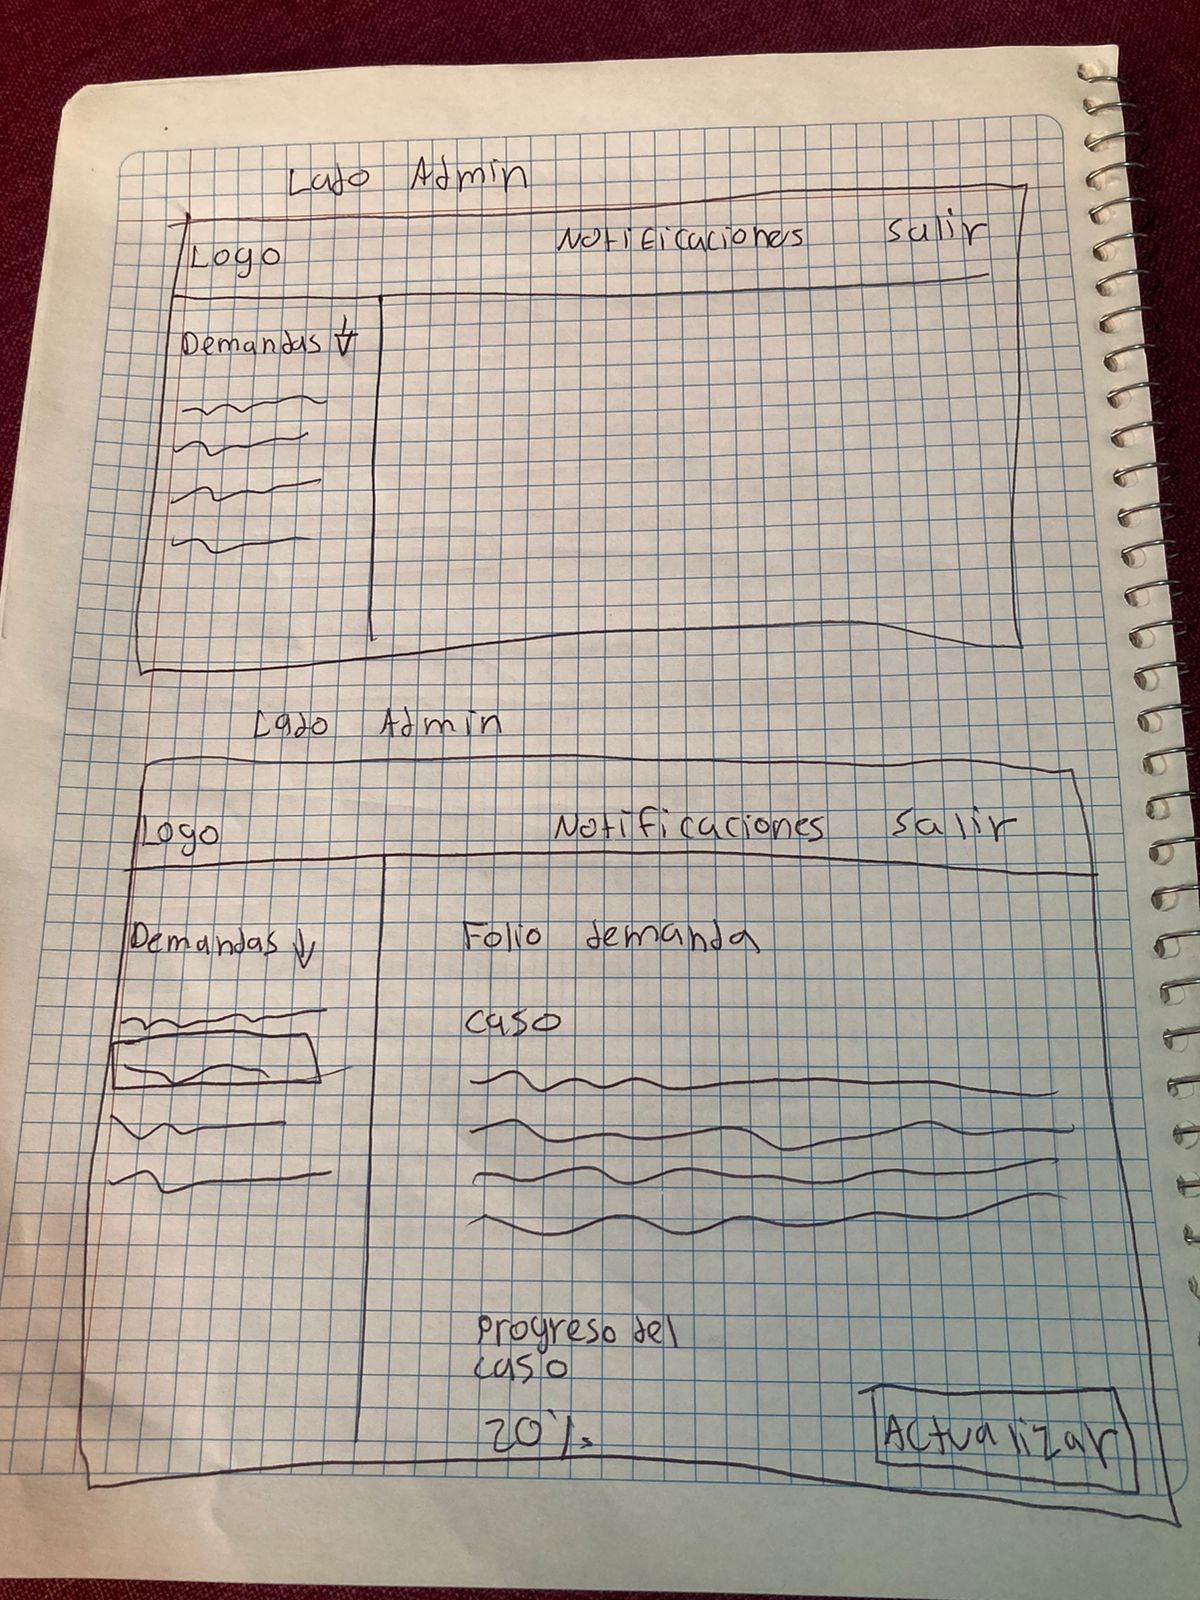 Lado Admin
Logo Notificaciones Salir
Demandas ↓
Lado Admin
Logo Notificaciones Salir
Demandas ↓
Folio demanda
caso
Progreso del
caso
20%
Actualizar